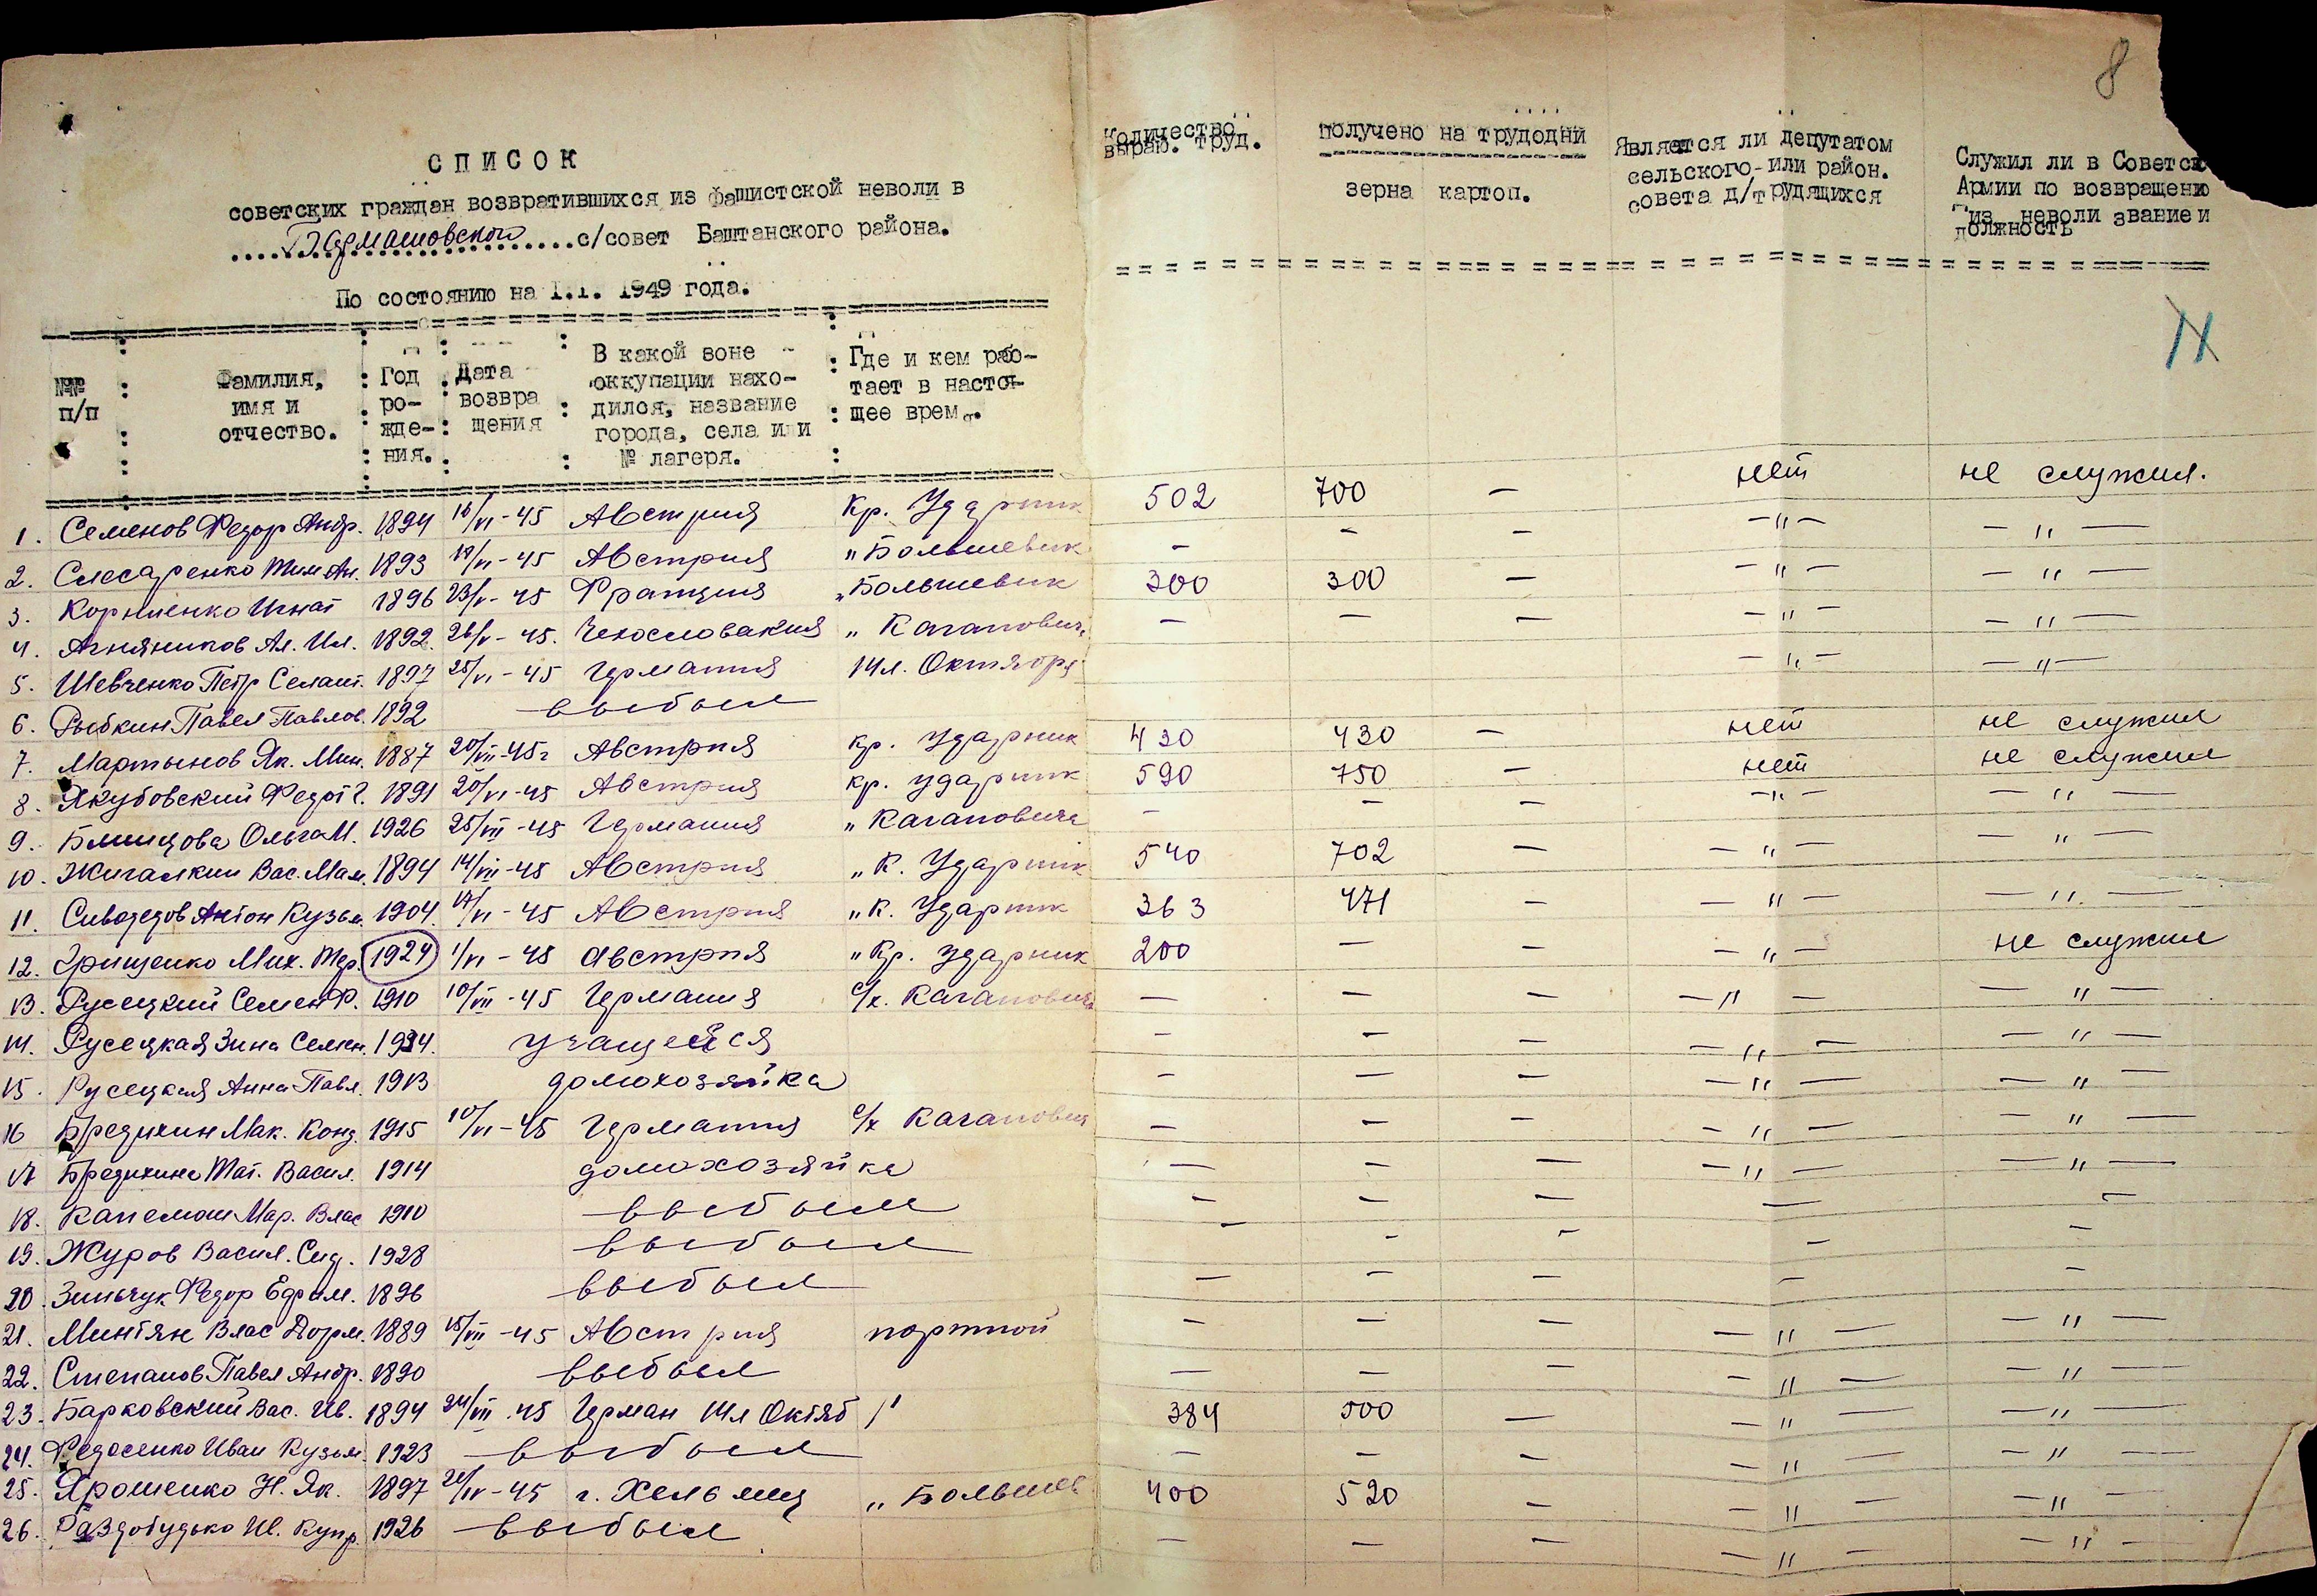 8
СПИСОК
советских граждан возвратившихся из фашистской неволи в
....Бармашовской....с/совет Баштанского района.
По состоянию на 1.1. 1949 года.
№№ п/п
Фамилия, имя и отчество.
Год рождения.
Дата возвращения
В какой зоне оккупации находился, название города, села или № лагеря.
Где и кем работает в настоящее врем.
Количество выраб. труд.
Получено на трудодни
зерна картоп.
Является ли депутатом сельского-или район. совета д/трудящихся
Служил ли в Советск Армии по возвращению из неволи звание и должность
1. Семенов Федор Андр. 1894 16/VI-45 Австрия Кр. Ударник 502 700 — нет не служил.
2. Слесаренко Тим Ан. 1893 19/VI-45 Австрия "Большевик — — — —"— —"—
3. Корниенко Игнат 1896 23/V-45 Франция "Большевик 300 300 — —"— —"—
4. Агняников Ал. Ил. 1892. 26/V-45. Чехословакия "Кагановича — — — —"— —"—
5. Шевченко Петр Селант. 1897 25/VI-45 Германия Шл. Октября —"— —"—
6. Рыбкин Павел Павлов. 1892 выбыл
7. Мартынов Як. Мин. 1887 20/VII-45г Австрия кр. Ударник 430 430 — нет не служил
8. Якубовский Федот Г. 1891 20/VI-45 Австрия кр. ударник 590 750 — нет не служил
9. Блинцова Ольга И. 1926 25/VIII-45 Германия "Кагановича — — — —"— —"—
10. Жигалкин Вас. Мам. 1894 14/VIII-45 Австрия "К. Ударник 540 702 — —"— —"—
11. Сиводедов Антон Кузьм. 1904. 17/VI-45 Австрия "К. Ударник 363 471 — —"— —"—
12. Грищенко Мих. Тер. 1924 1/VI-45 Австрия "Кр. ударник 200 — — —"— не служил
13. Русецкий Семен Ф. 1910 10/VII-45 Германия с/х. Кагановича — — — —"— —"—
14. Русецкая Зина Семен. 1934. учащейся — — — —"— —"—
15. Русецкая Анна Павл. 1913 домохозяйка — — — —"— —"—
16 Бредихин Мак. Конд. 1915 10/VI-45 Германия с/х Кагановича — — — —"— —"—
17 Бредихина Тат. Васил. 1914 домохозяйка — — — —"— —"—
18. Мар. Влас 1910 выбыл — — — — —
19. Журов Васил. Сид. 1928 выбыл — — — — —
20. Зинчук Федор Ефим. 1896 выбыл — — — — —
21. Минтян Влас Дорм. 1889 15/VIII-45 Австрия портной — — — —"— —"—
22. Степанов Павел Андр. 1890 выбыл — — — —"— —"—
23. Барковский Вас. Ив. 1894 24/VIII.45 Герман Шл Октяб 384 500 — —"— —"—
24. Федосенко Иван Кузьм. 1923 выбыл — — — —"— —"—
25. Ярошенко Н. Як. 1897 -45 г. "Большев 400 520 — —"— —"—
26. Раздобудько Ив. Купр. 1926 выбыл — — — —"— —"—